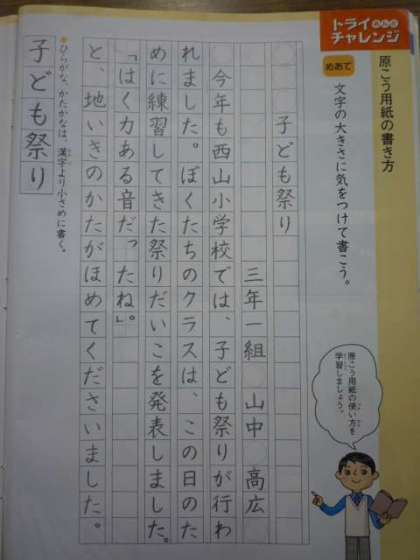 トライあんどチャレンジ
原こう用紙の書き方
めあて
文字の大きさに気をつけて書こう。
原こう用紙の使い方を
学習しましょう。
子ども祭り
三年一組　山中　高広
今年も西山小学校では、子ども祭りが行わ
れました。ぼくたちのクラスは、この日のた
めに練習してきた祭りだいこを発表しました。
「はく力ある音だったね」。
と、地いきのかたがほめてくださいました。
ひらがな、かたかなは、漢字より小さめに書く。
子ども祭り